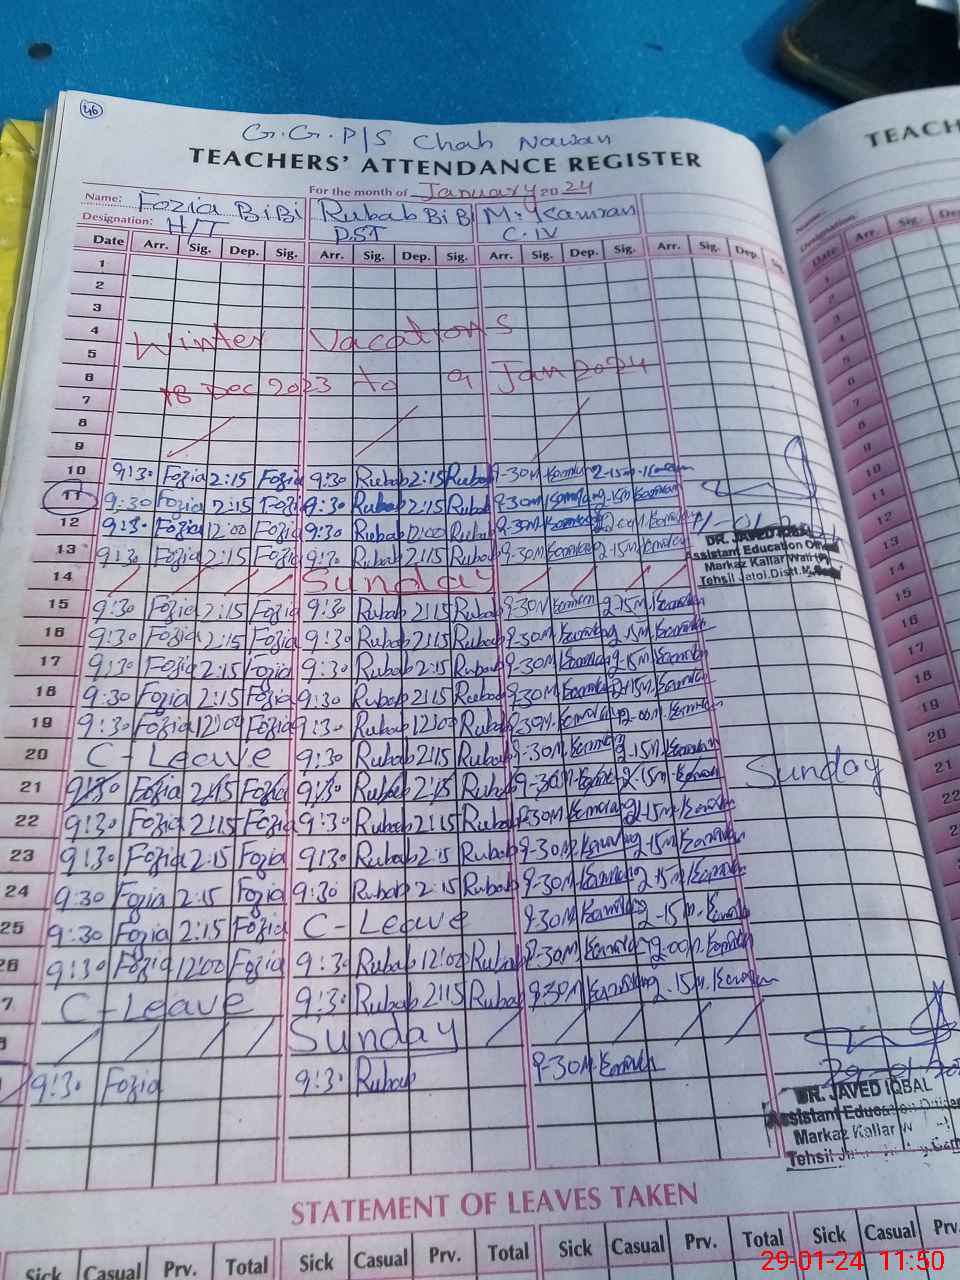 46
G.G.P/S Chah Nawan
TEACHERS' ATTENDANCE REGISTER
TEACH
For the month of January 2024
Name: Fozia BiBi Rubab BiBi M. Kamran
Designation: H/T DST C.IV
Date Arr. Sig. Dep. Sig. Arr. Sig. Dep. Sig. Arr. Sig. Dep. Sig. Arr. Sig. Dep. Date Arr. Sig.
1
2
3
4 Winter Vacations
5
6 18 Dec 2023 to 9 Jan 2024
7
8
9
10 9:30 Fozia 2:15 Fozia 9:30 Rubab 2:15 Rubab 9-30 Kamran 2-15 Kamran
11 9:30 Fozia 2:15 Fozia 9:30 Rubab 2:15 Rubab 9-30 Kamran 2-15 Kamran
12 9:30 Fozia 12:00 Fozia 9:30 Rubab 12:00 Rubab 9-30 Kamran 12-00 Kamran
13 9:30 Fozia 2:15 Fozia 9:30 Rubab 2:15 Rubab 9-30 Kamran 2-15 Kamran
DR. JAVED IQBAL
Assistant Education
Markaz Kallar Wali
Tehsil Jatoi, Distt.
14 Sunday
15 9:30 Fozia 2:15 Fozia 9:30 Rubab 2:15 Rubab 9-30 Kamran 2-15 Kamran
16 9:30 Fozia 2:15 Fozia 9:30 Rubab 2:15 Rubab 9-30 Kamran 2-15 Kamran
17 9:30 Fozia 2:15 Fozia 9:30 Rubab 2:15 Rubab 9-30 Kamran 2-15 Kamran
18 9:30 Fozia 2:15 Fozia 9:30 Rubab 2:15 Rubab 9-30 Kamran 2-15 Kamran
19 9:30 Fozia 12:00 Fozia 9:30 Rubab 12:00 Rubab 9-30 Kamran 12-00 Kamran
20 C-Leave 9:30 Rubab 2:15 Rubab 9-30 Kamran 2-15 Kamran
21 9:30 Fozia 2:15 Fozia 9:30 Rubab 2:15 Rubab 9-30 Kamran 2-15 Kamran Sunday
22 9:30 Fozia 2:15 Fozia 9:30 Rubab 2:15 Rubab 9-30 Kamran 2-15 Kamran
23 9:30 Fozia 2:15 Fozia 9:30 Rubab 2:15 Rubab 9-30 Kamran 2-15 Kamran
24 9:30 Fozia 2:15 Fozia 9:30 Rubab 2:15 Rubab 9-30 Kamran 2-15 Kamran
25 9:30 Fozia 2:15 Fozia C-Leave 9-30 Kamran 2-15 Kamran
26 9:30 Fozia 12:00 Fozia 9:30 Rubab 12:00 Rubab 9-30 Kamran 12-00 Kamran
7 C-Leave 9:30 Rubab 2:15 Rubab 9-30 Kamran 2-15 Kamran
Sunday
9:30 Fozia 9:30 Rubab 9-30 Kamran
DR. JAVED IQBAL
Assistant Education Officer
Markaz Kallar
Tehsil
STATEMENT OF LEAVES TAKEN
Sick Casual Prv. Total Sick Casual Prv. Total Sick Casual Prv. Total Sick Casual Prv.
29-01-24 11:50